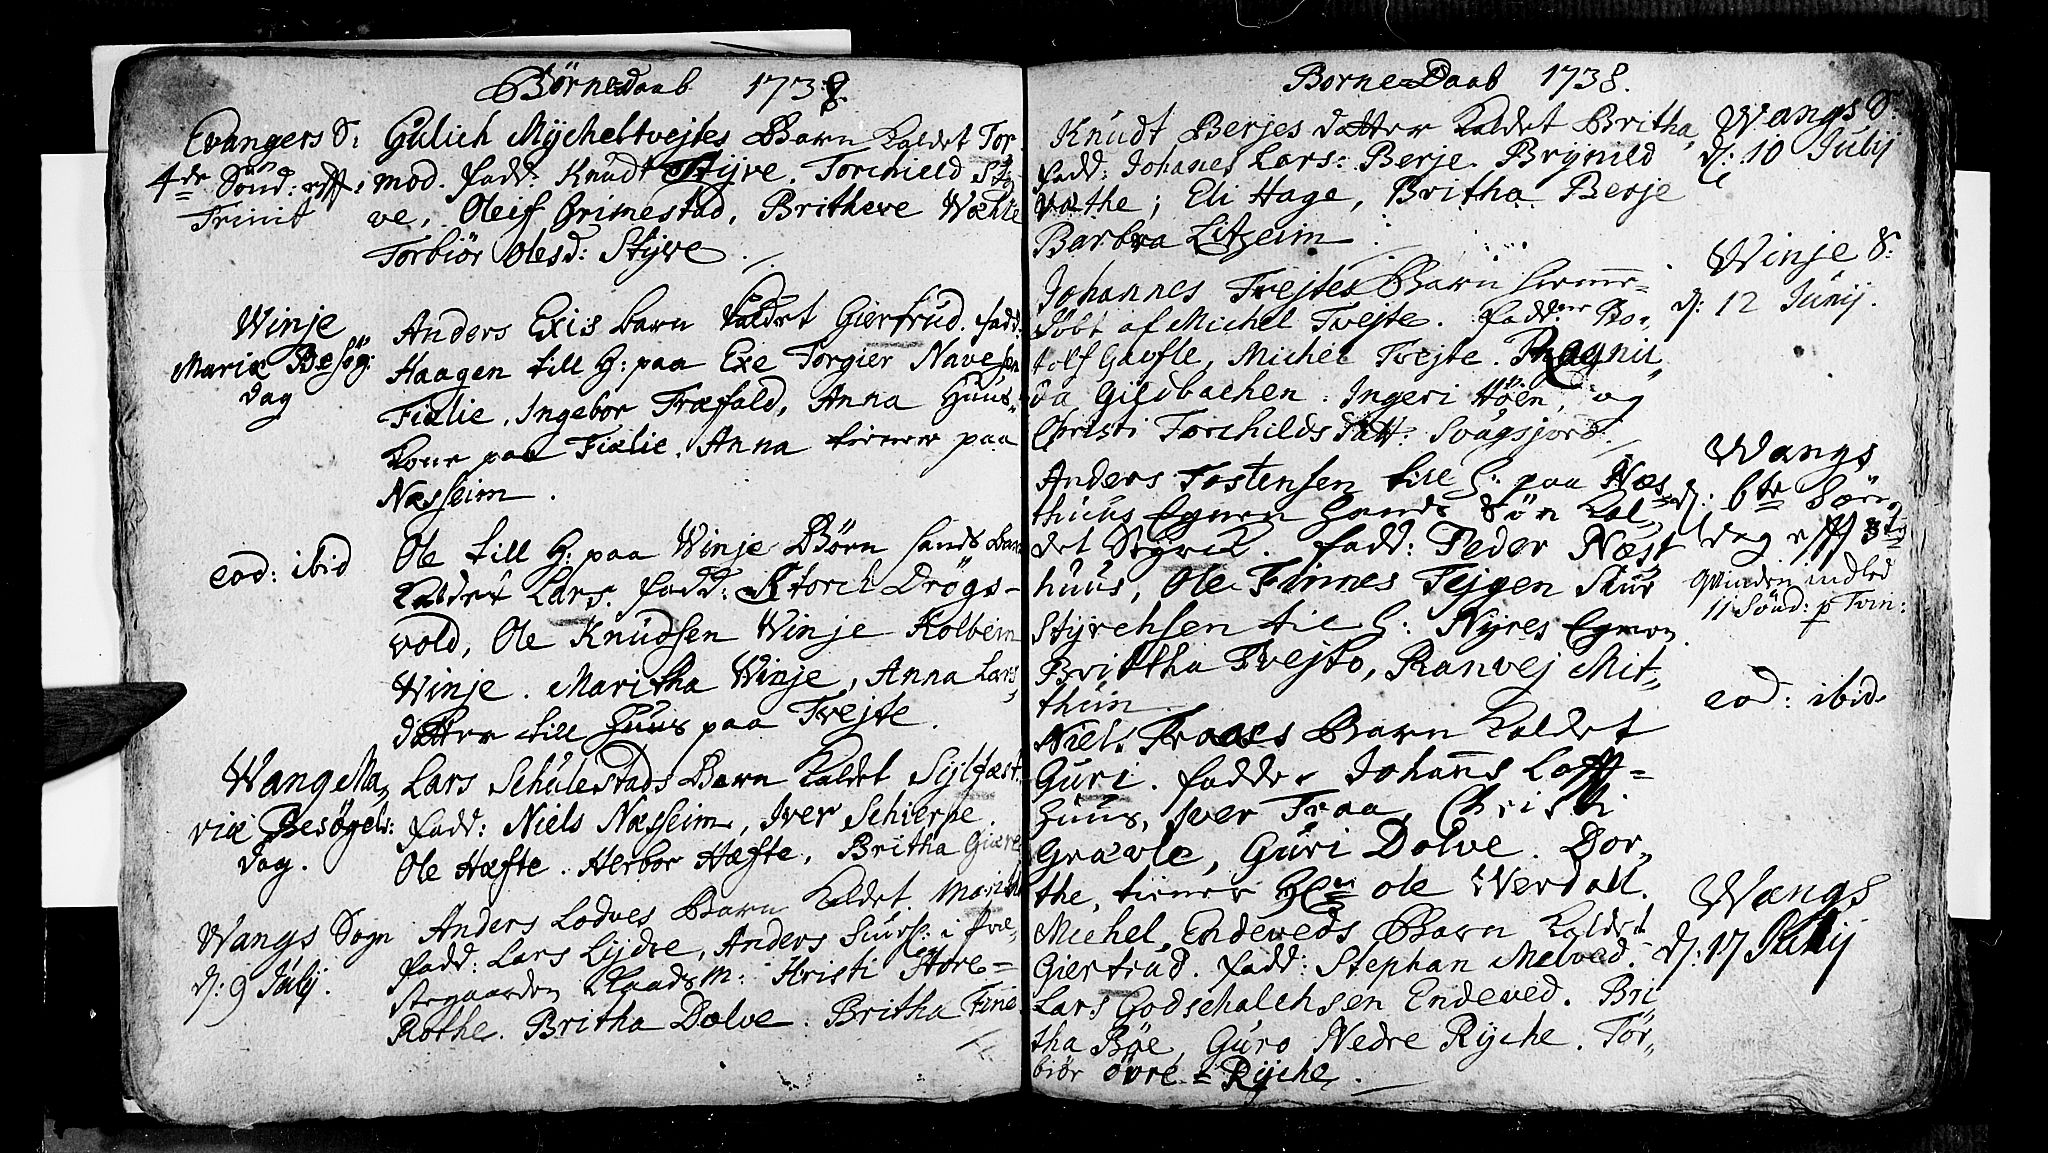 Børne Daab 1738.
Evangers S:
4de Sönd: efft:
Trinit
Gulich Mycheltvejtes Barn Kaldet Tor-
mod. fadd: Knudt Styve. Torchield Sty
ve, Oleif Grimestad, Britheve Wæhle
Torbiör Olesd: Styve.
Winje
Mariæ Besög:
dag
Anders Exis barn Kaldet Giertrud. fadd:
Haagen till H: paa Exe Torgier Navesen
Fialie, Ingebor Træfald, Anna Huus-
Kone paa Fialie. Anna tiener paa
Næsheim.
eod: ibid
Ole till H: paa Winje Börn hands barn
Kaldet Lars. fadd: Storch Drögs-
vold, Ole Knudsen Winje Kolbein
Winje. Maritha Winje, Anna Lars
datter till Huus paa Tvejte.
Wang Ma-
riæ Besögels:
dag.
Lars Schulestads Barn Kaldet Sylfæst.
fadd: Niels Næsheim, Iver Schierpe.
Ole Hæfte. Herbor Hæfte, Britha Giære
Wangs Sogn
d: 9 Julij.
Anders Lodves Barn Kaldet
fadd: Lars Lydve, Anders Siurs: i Præ-
stegaarden Kristi Store-
Rothe. Britha Dolve. Britha Fine
Borne-Daab 1738.
Wangs S:
d: 10 Julij
Knudt Berjes datter Kaldet Britha,
fadd: Johanes Lars: Berje. Brynild
Væthe; Eli Hage, Britha Berje
Barbra Litzeim.
Winje S:
d: 12 Junij.
Johannes Tvejtes Barn hieme-
döbt af Michel Tvejte. fadder Bo-
tolf Gavfle, Michel Tvejte. Ragnil-
da Gildbachen. Ingeri Höen, og
Christi Torchilds datt: Svagsjord.
Wangs
d: 6te Sön-
dag efft
Qvinden indled
11 Sönd: p Trin:
Anders Tostensen till H: paa Næst
huus Egnen hands Sön Kal-
det Styrck. fadd: Peder Næst
huus, Ole Finnes Tejgen Siur
Styrchsen til H: Nyres Egnen
Brittha Tvejto, Ranvej Mit-
thun.
eod: ibid.
Niels Traaes Barn Kaldet
Guri. fadder Johanns Loft-
huus, Iver Traa, Christi
Grævle, Guri Dolve. Dor-
the, tiener Hr Ole Werdal.
Wangs
d: 17
Michel Endeveds Barn Kaldet
Giertrud. fadd: Stephan Melved.
Lars Godschalchsen Endeved. Bri
tha Böe, Guro Nedre Ryche. Tor-
biör övre = Ryche.